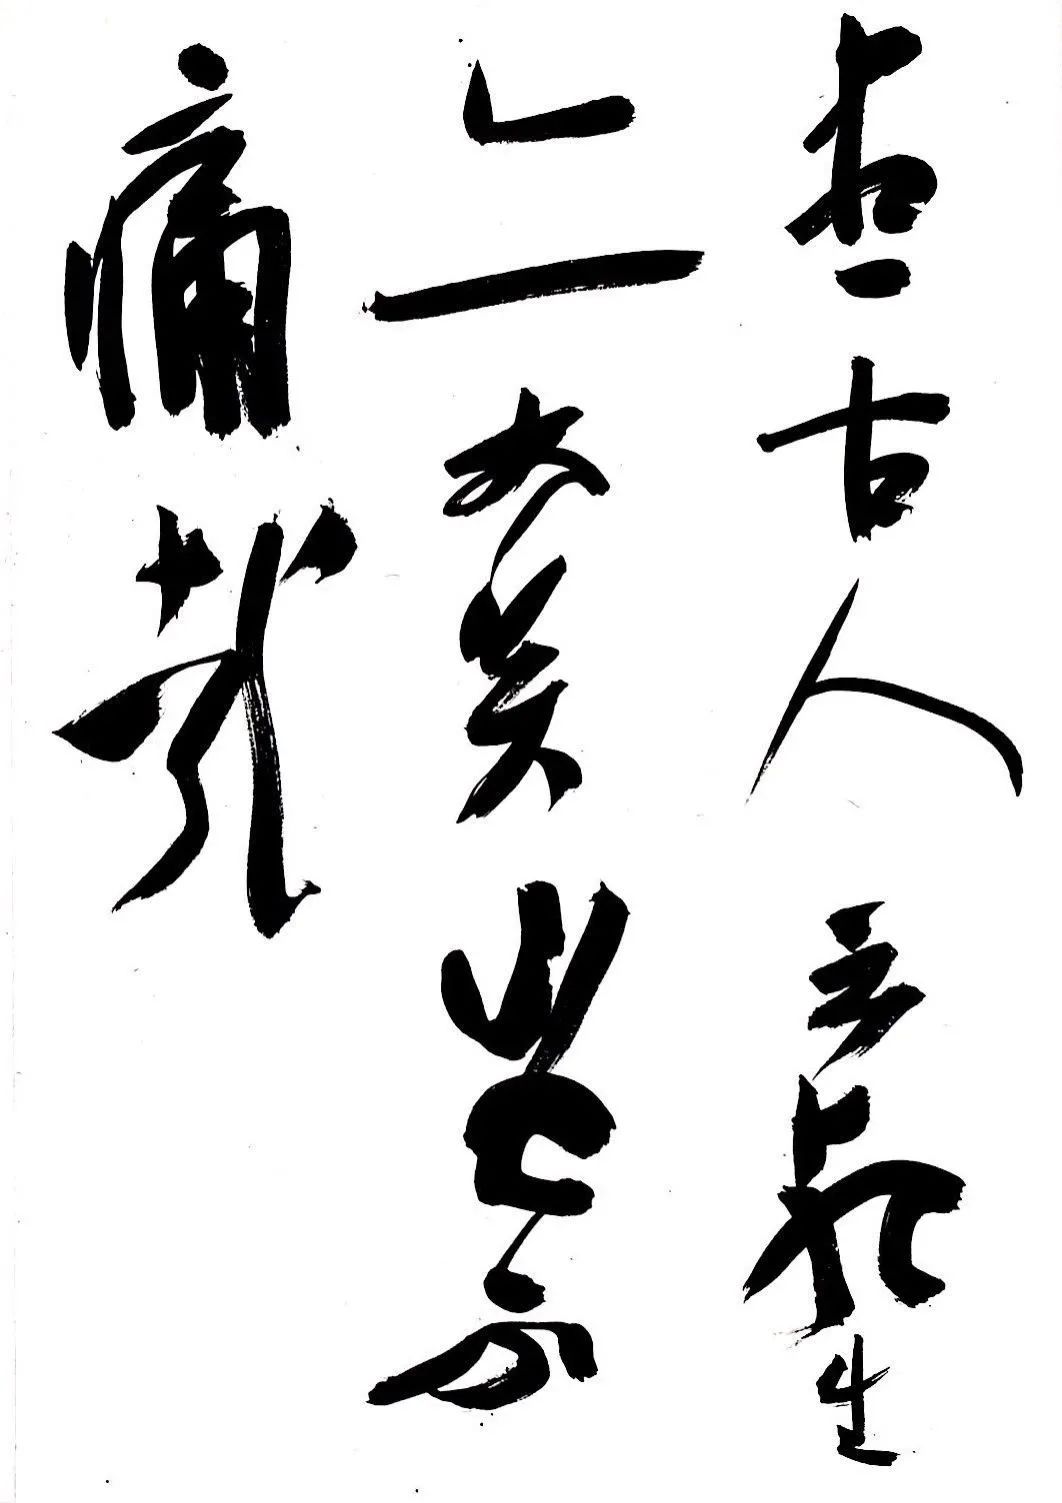 盡古人云死生
亦大矣豈不
痛哉